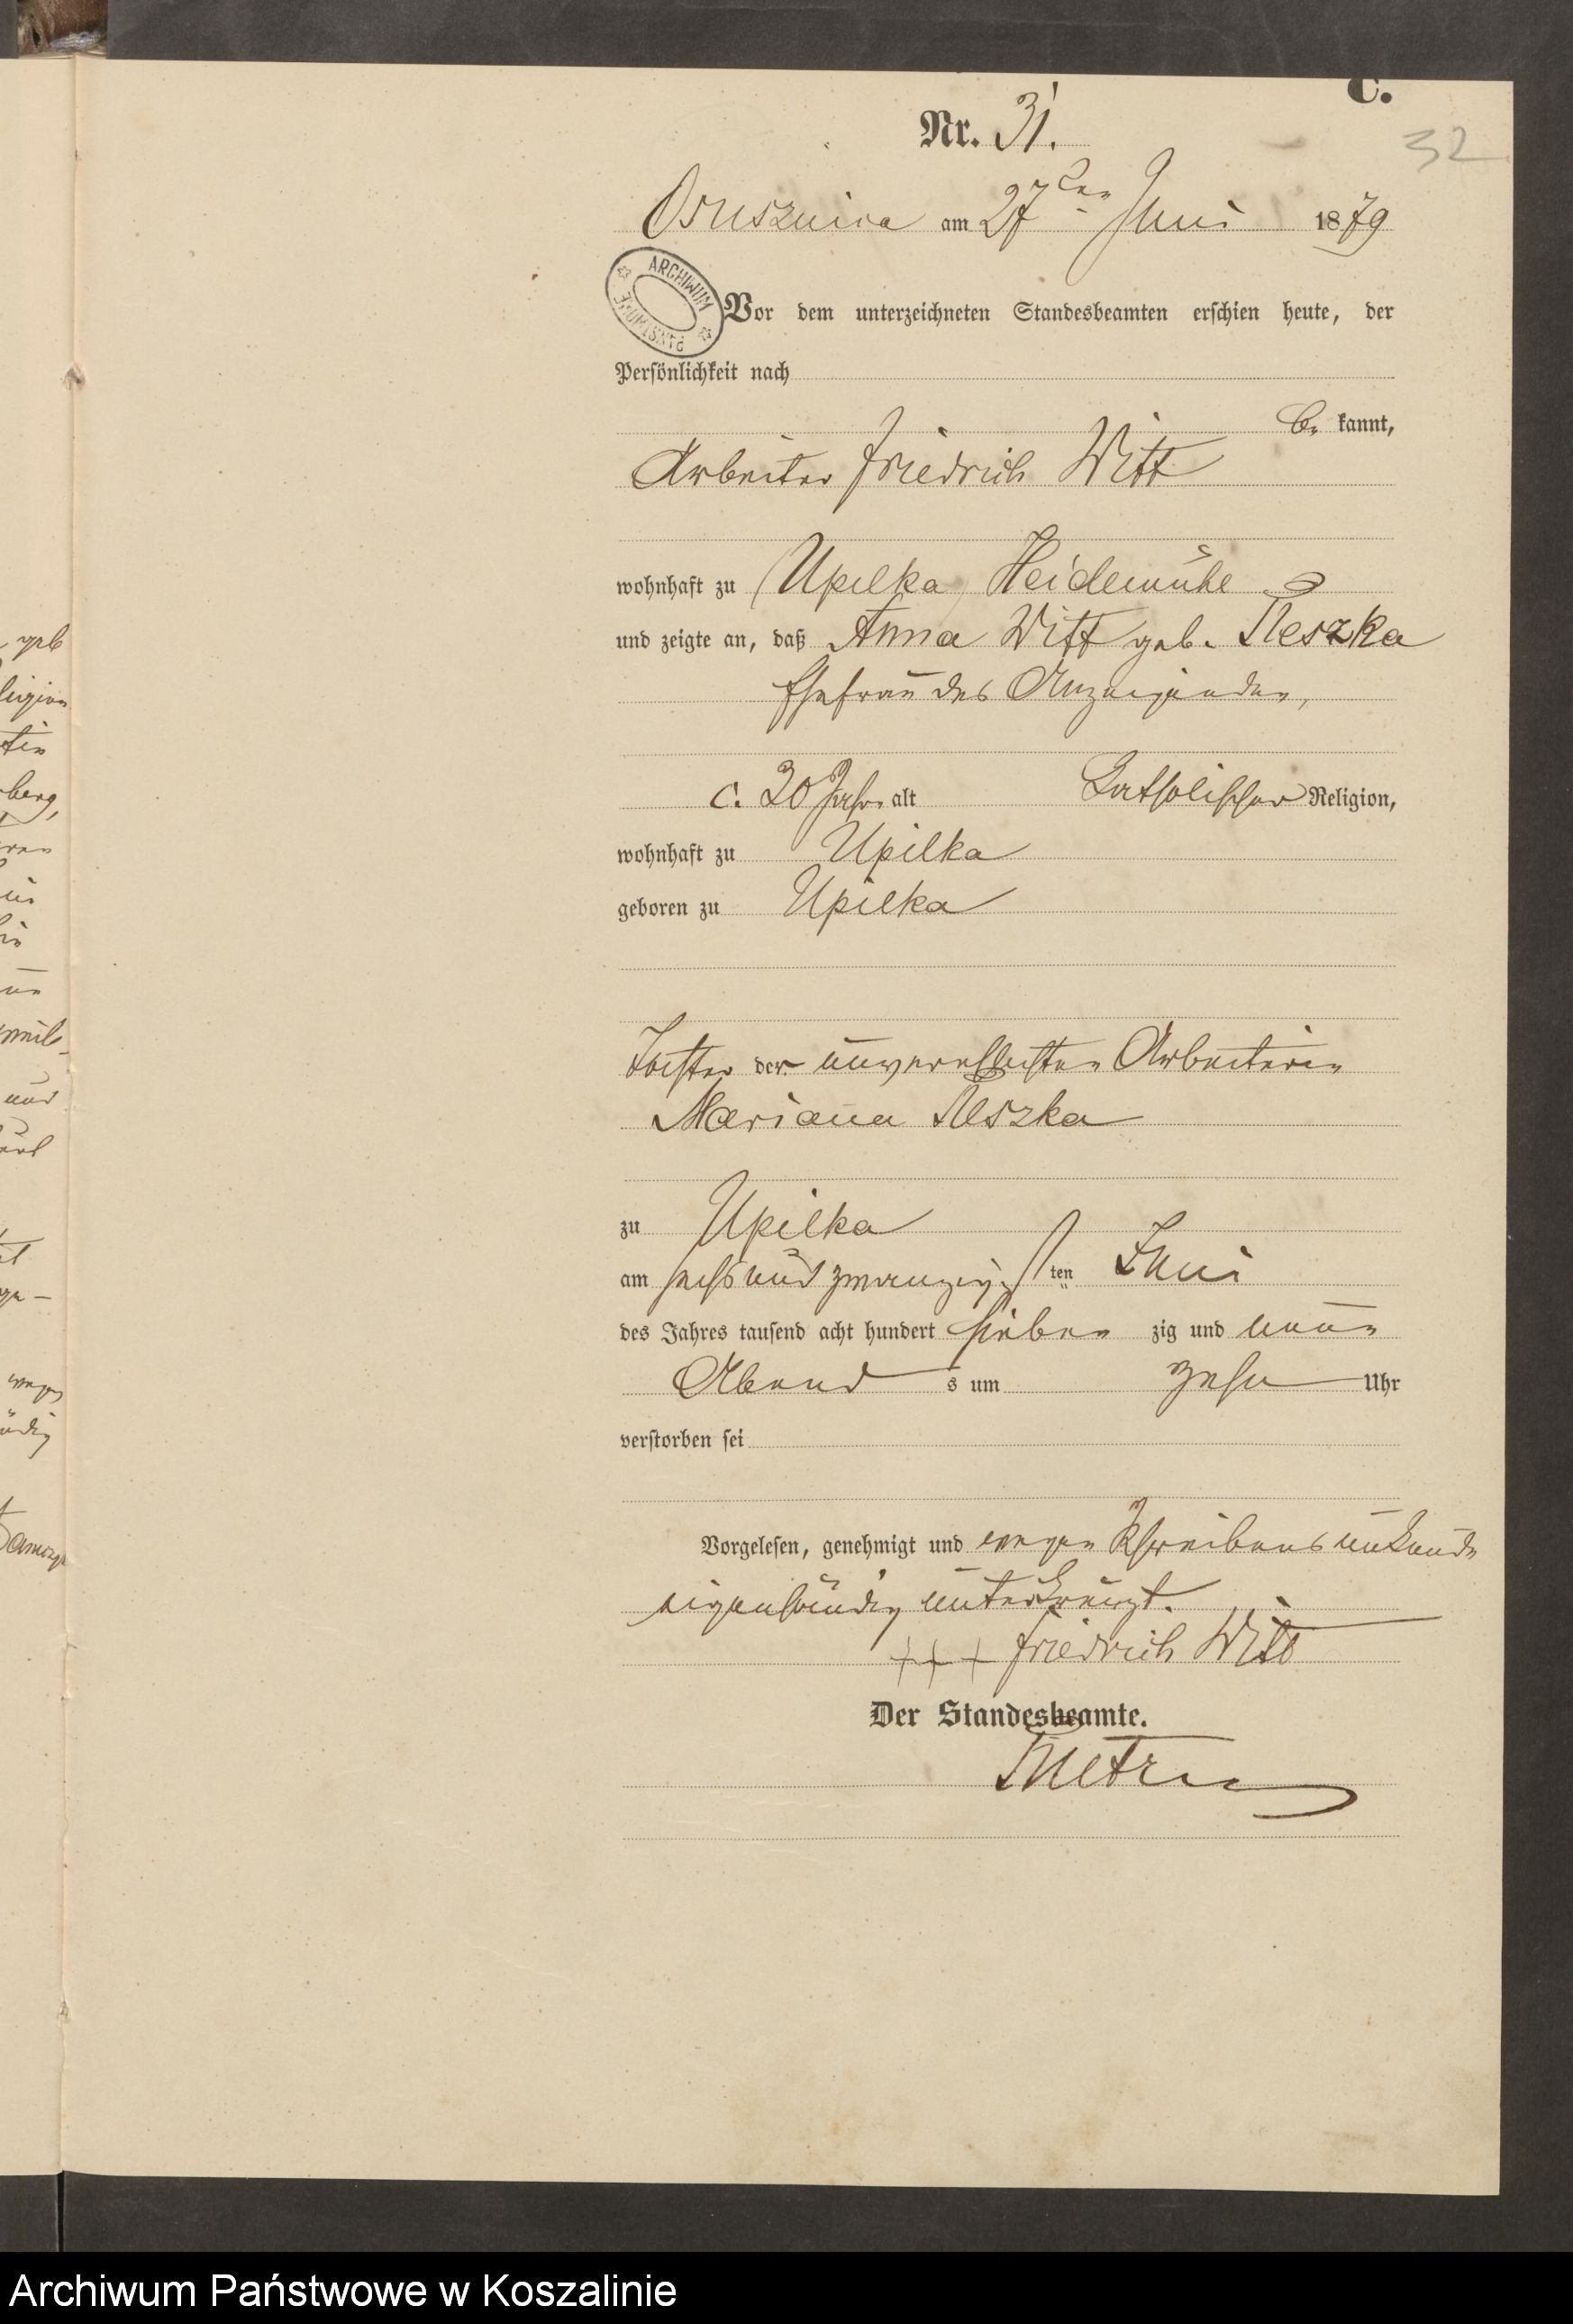 C.
Nr. 31.
32
Osusznica am 27ten Juni 1879
ARCHIWUM PAŃSTWOWE
Vor dem unterzeichneten Standesbeamten erschien heute, der
Persönlichkeit nach
be kannt,
Arbeiter Friedrich Witt
wohnhaft zu (Upilka) Heidemühle
und zeigte an, daß Anna Witt geb.
Ehefrau des Anzeigenden,
c. 30 Jahr alt Katholischer Religion,
wohnhaft zu Upilka
geboren zu Upilka
Tochter der unverehelichten Arbeiterin
Mariana
zu Upilka
am sechs und zwanzigsten Juni
des Jahres tausend acht hundert sieben zig und neun
Abend s um zehn Uhr
verstorben sei
Vorgelesen, genehmigt und wegen Schreibensunkunde
eigenhändig unterkreuzt.
+ + + Friedrich Witt
Der Standesbeamte.
geb
und
Archiwum Państwowe w Koszalinie